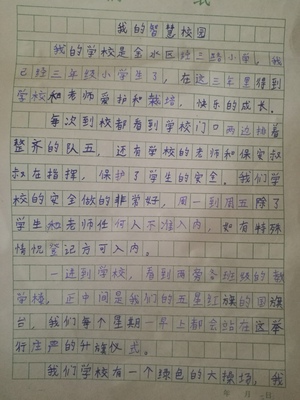 我的智慧校园
我的学校是金水区纬三路小学，我
已经三年级小学生了，在这三年里得到
学校和老师爱护和栽培，快乐的成长。
每次到校都看到学校门口两边排着
整齐的队五，还有学校的老师和保安叔
叔在指挥，保护了学生的安全。我们学
校的安全做的非常好，周一到周五除了
学生和老师任何人不准入内，如有特殊
情况登记方可入内。
一进到学校，看到两旁各班级的教
学楼，正中间是我们的五星红旗的国旗
台，我们每个星期一早上都会站在这举
行庄严的升旗仪式。
我们学校有一个绿色的大操场，我
年 月 日